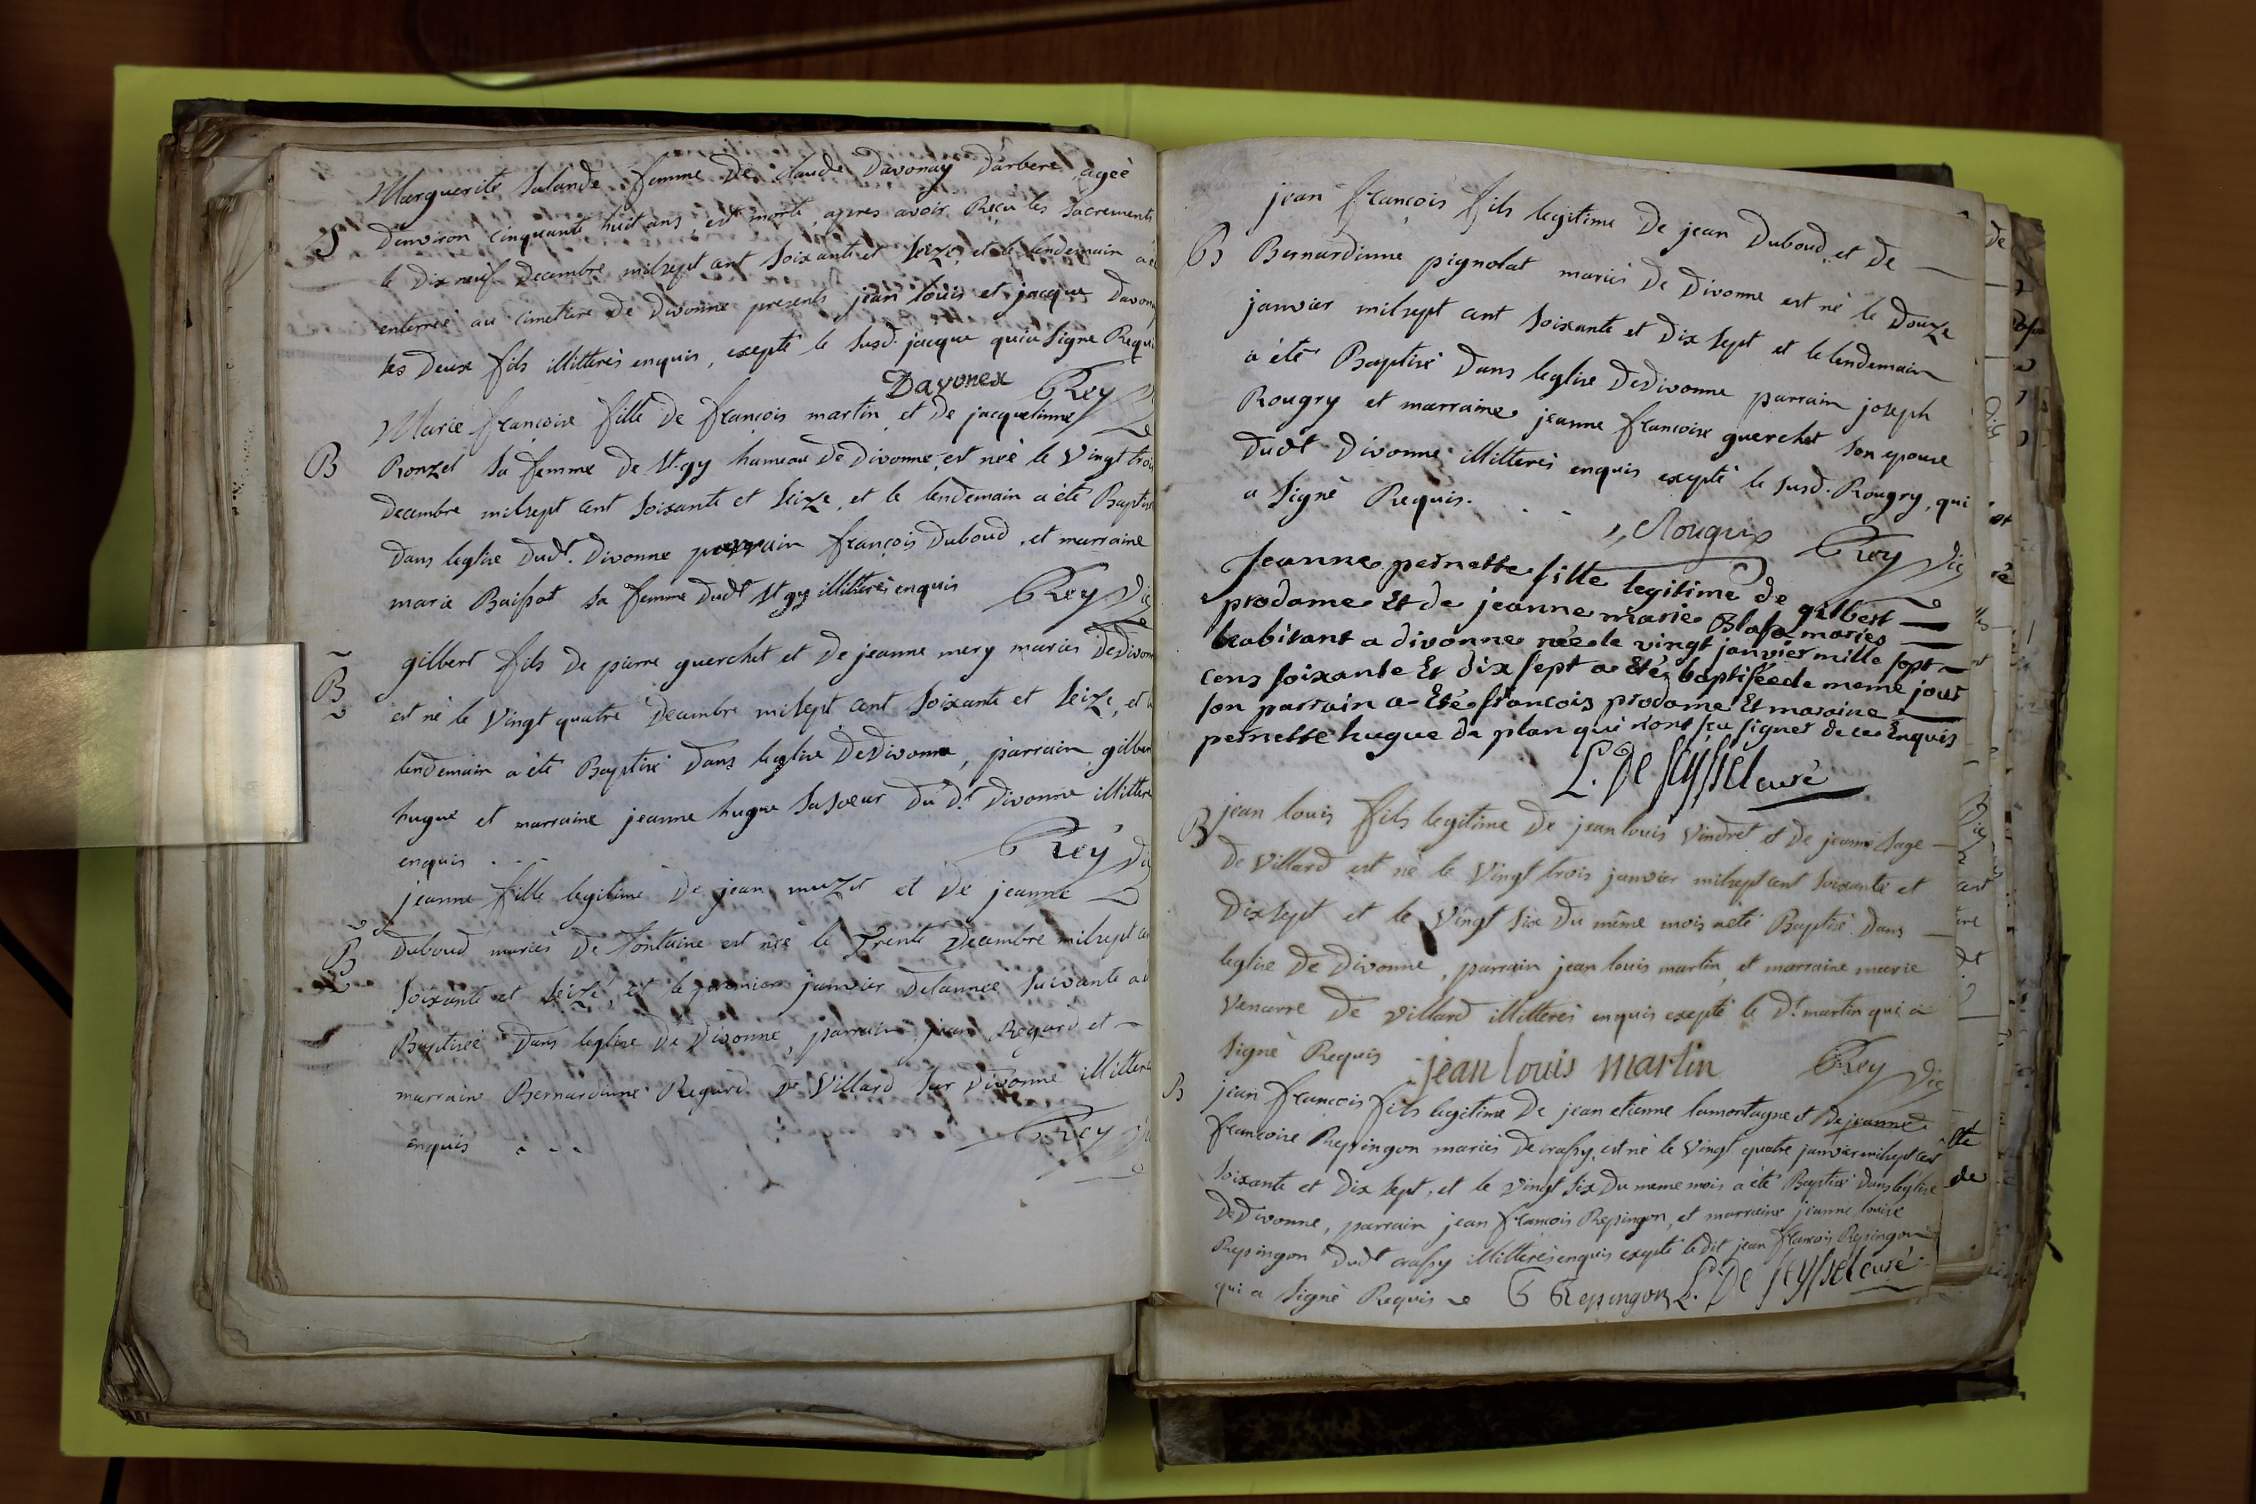 Marguerite Salande femme De claude Davonay D'arbere agée
S
D'environ cinquante huit ans, est morte, apres avoir Reçu les Sacrements
le Dix neuf Decembre milsept cent Soixante et Seize, et le lendemain a été
enterreé au cimetiere De Divonne presents jean louis et jacque Davon
ses Deux fils illitterés enquis, exepté le Susd. jacque qui a Signé Requi
Davonex Rey
Marie françoise fille De françois martin et De jacquelinne
B
Ronzet Sa femme De St. gy hameau De Divonne, est neé le Vingt trois
Decembre milsept cent Soixante et Seize, et le lendemain a été Baptis
Dans leglise Dudt. Divonne parrain françois Duboud, et marraine
marie Baissat Sa femme Dudt St gy illitterés enquis Rey Vic
gilbert fils De pierre querchet et De jeanne mery mariés De Divonn
B
est né le Vingt quatre Decembre milsept cent Soixante et Seize, et le
lendemain a été Baptisé Dans leglise De Divonne, parrain gilber
hugue et marraine jeanne hugue Sa Soeur Du dt Divonne illittere
enquis . - - Rey Vic
jeanne fille legitime De jean muzet et De jeanne
B
Duboud mariés De fontaine est neé le Trente Decembre milsept ce
Soixante et Seize, et le premier janvier De lanneé Suivante a e
Baptiseé Dans leglise De Divonne, parrain jean Regard et
marraine Bernardinne Regard De Villard Sur Divonne illittere
enquis . - - Rey
jean françois fils legitime De jean Duboud, et De
B
Bernardinne pignolat mariés De Divonne est né le Douze
janvier milsept cent Soixante et Dix Sept et le lendemain
a été Baptisé Dans leglise De Divonne parrain joseph
Rougry et marraine jeanne françoise querchet Son epouse
Dudt Divonne illitterés enquis exepté le Susd. Rougry, qui
a Signé Requis. - -
Rougry Rey Vic
Jeanne pernette fille legitime de gilbert
prodame Et de jeanne marie Blasa mariés
habitant a divonne née le vingt janvier mille sept
cens soixante Et dix sept a Eté baptisée le meme jour
son parrain a Eté francois prodame Et maraine
pernette hugue de plan qui nont sçu signer de ce Enquis
L. De Seyssel curé
B
jean louis fils legitime De jean louis Vindret et De jeanne Sage
De Villard est né le Vingt trois janvier milsept cent Soixante et
Dix Sept et le Vingt Six Du même mois a eté Baptisé Dans
leglise De Divonne, parrain jean louis martin, et marraine marie
Venarre De Villard illitterés enquis exepté le Dt. martin qui a
Signé Requis jean louis martin Rey Vic
B
jean françois fils legitime De jean etienne lamontagne et De jeanne
françoise Repingon mariés De crassy, est né le Vingt quatre janvier milsept cent
Soixante et Dix Sept, et le Vingt Six Du meme mois a été Baptisé Dans leglise
De Divonne, parrain jean françois Repingon, et marraine jeanne louise
Repingon Dudt crassy illitterés enquis exepté le dit jean françois Repingon
qui a Signé Requis Repingon L. De Seyssel curé